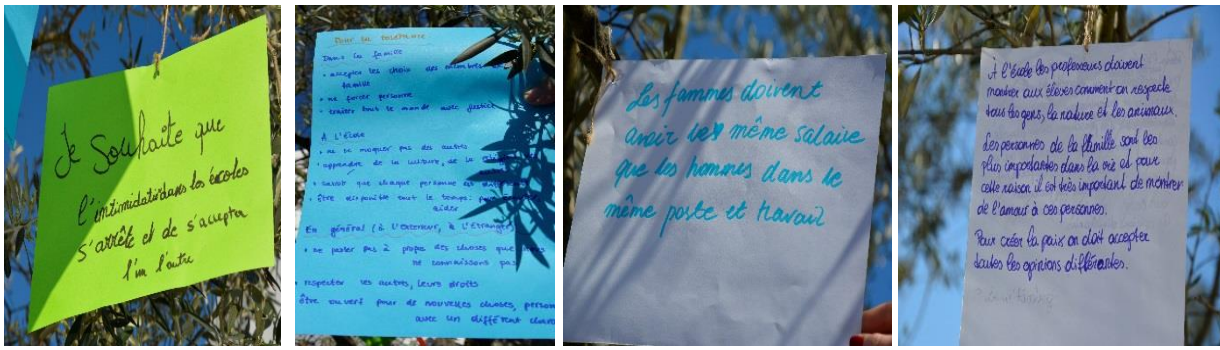 Je Souhaite que
l'intimidation dans les écoles
s'arrête et de s'accepter
l'un l'autre
Pour la tolérance
Dans la famille
• accepter les choix des membres
famille
• ne forcer personne
• traiter tout le monde avec justice
À l'école
• ne se moquer pas des autres
• apprendre de la culture, de la
• savoir que chaque personne est
• être disponible tout le temps
aider
En général (à l'exterieur, à l'étranger)
• ne parler pas à propos des choses que
ne connaissons pas
• respecter les autres, leurs droits
être ouvert pour de nouvelles choses,
avec un différent
Les fammes doivent
avoir le même salaire
que les hommes dans le
même poste et travail
À l'école les professeurs doivent
montrer aux élèves comment on respecte
tous les gens, la nature et les animaux.
Les personnes de la famille sont les
plus importantes dans la vie et pour
cette raison il est très important de montrer
de l'amour à ces personnes.
Pour créer la paix on doit accepter
toutes les opinions différentes.